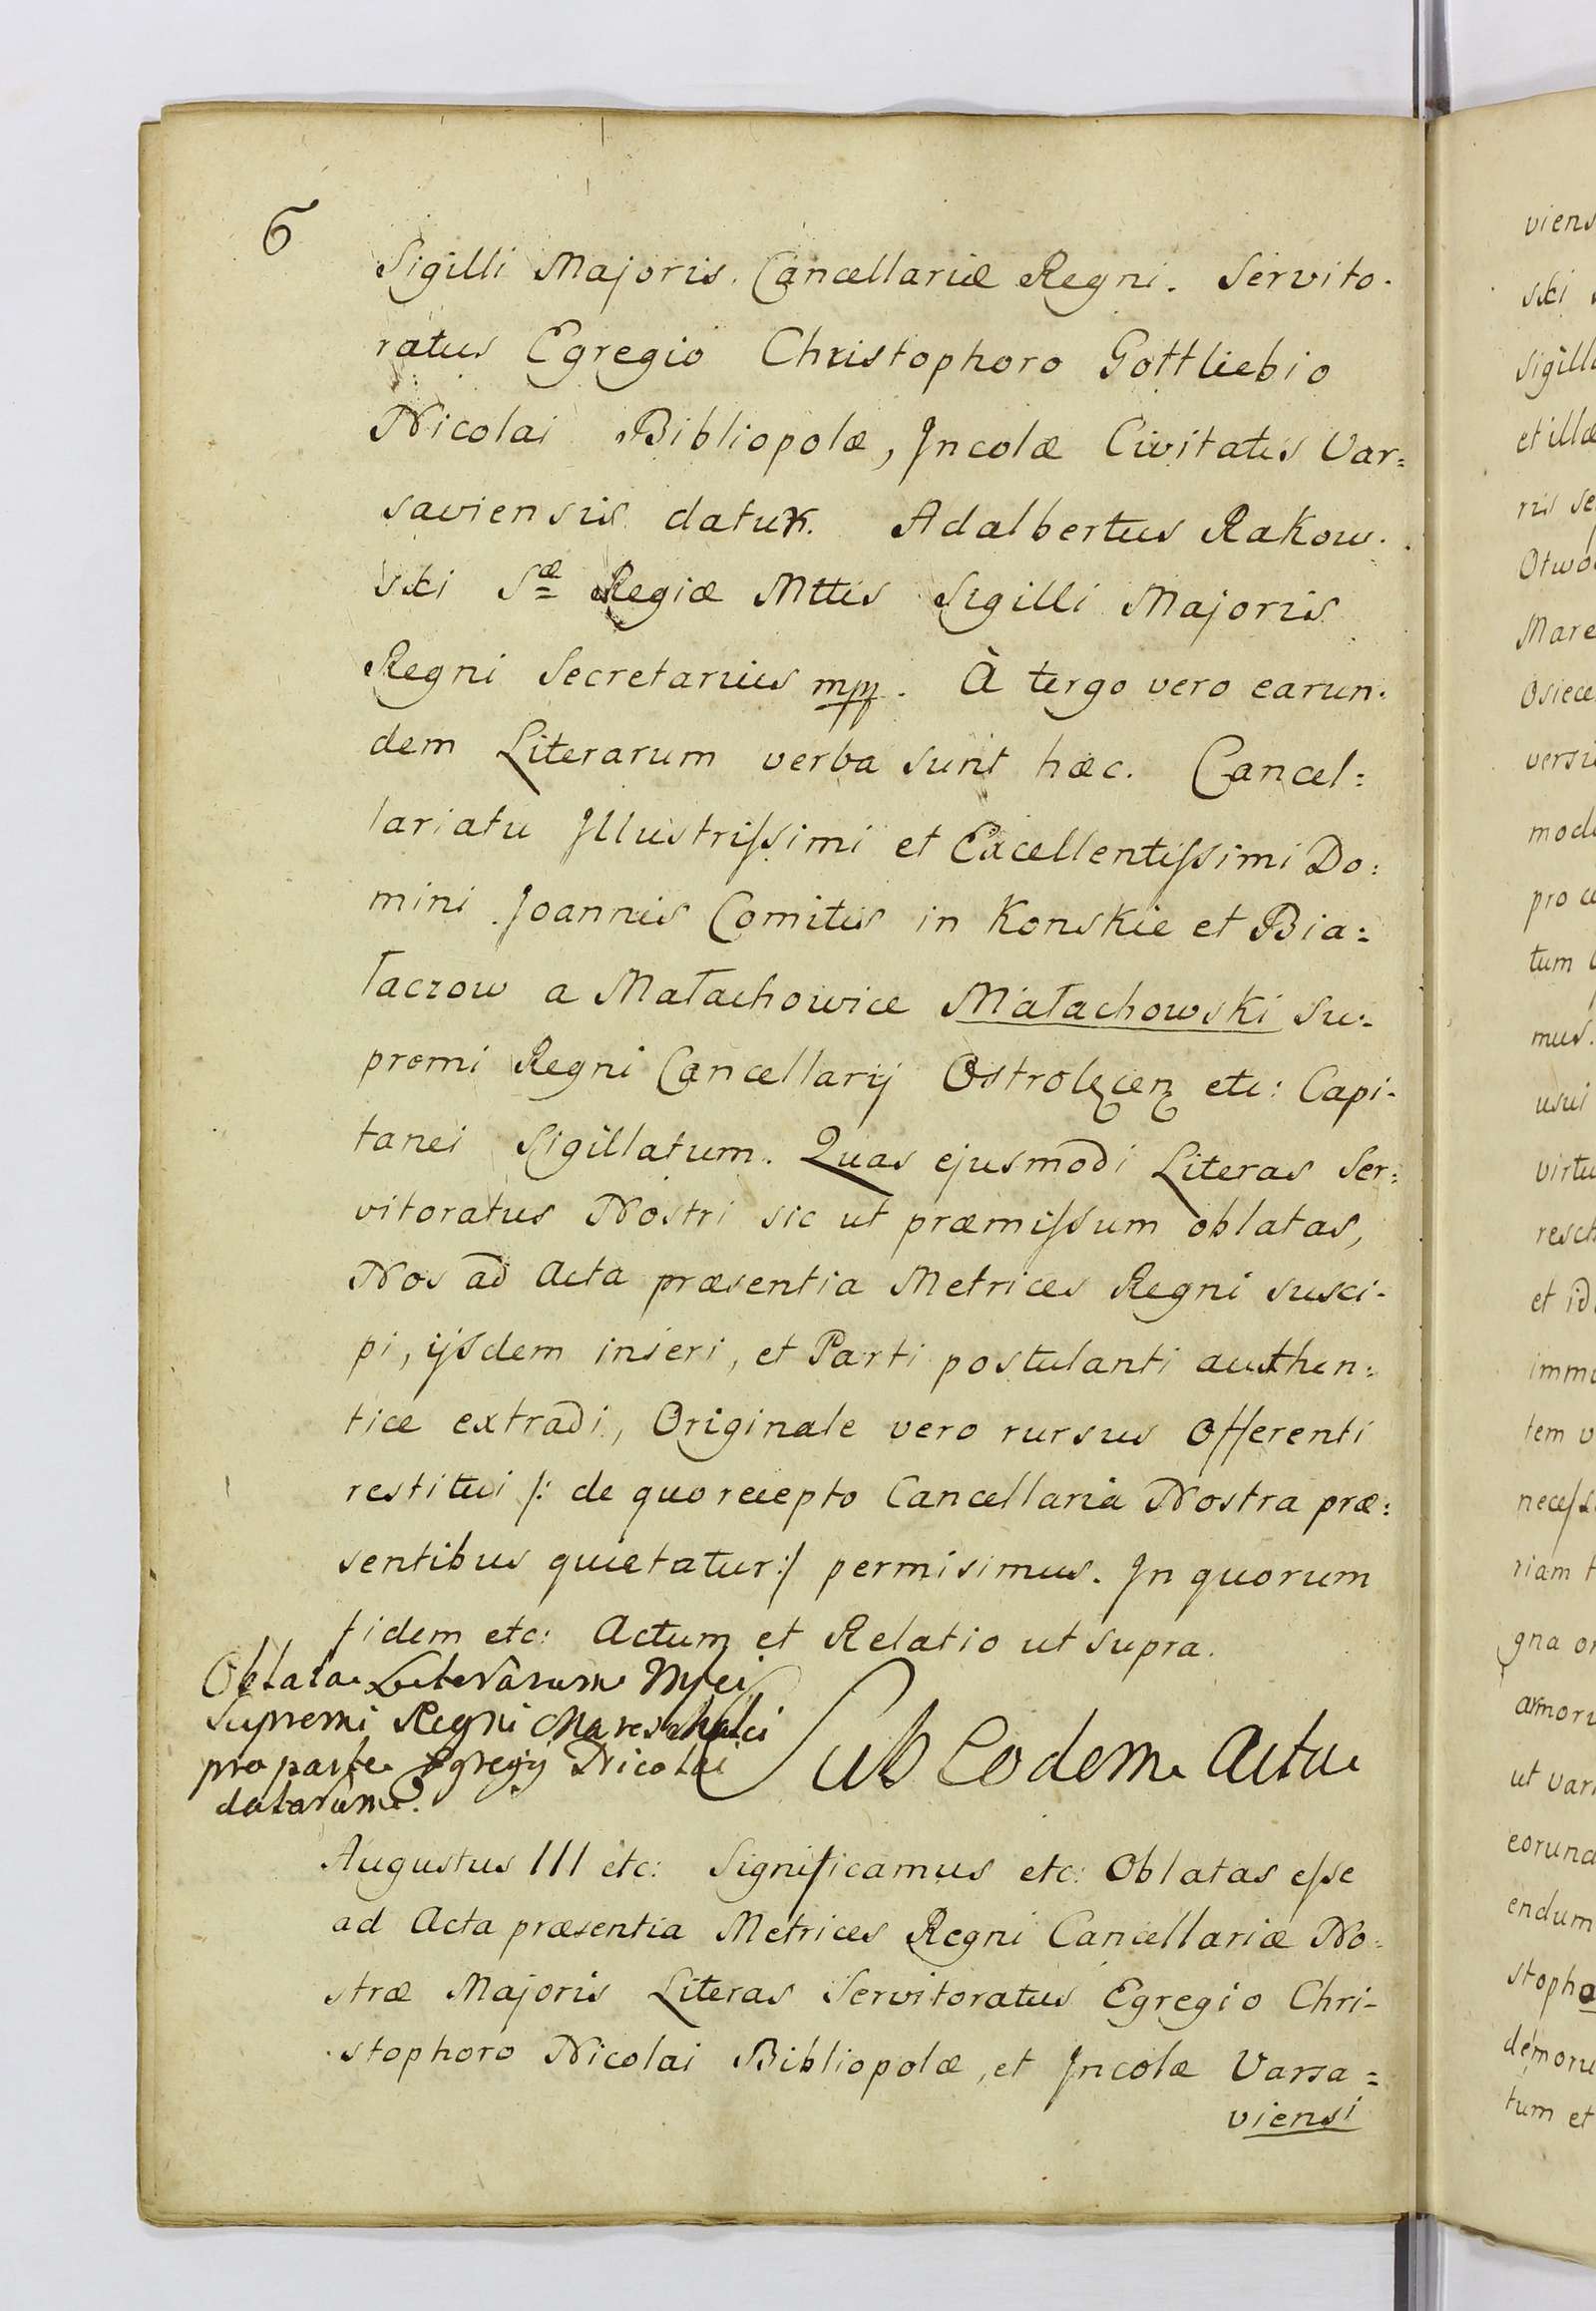 6
Sigilli Majoris Cancellariæ Regni. Servito-
ratus Egregio Christophoro Gottliebio
Nicolai Bibliopolæ, Incolæ Civitatis Var=
saviensis datur. Adalbertus Rakow-
ski Sæ Regiæ Mttis Sigilli Majoris
Regni Secretarius mpp. À tergo vero earun-
dem Literarum verba sunt hæc. Cancel=
lariatu Illustrissimi et Excellentissimi Do=
mini Joannis Comitis in Konskie et Bia=
łaczow a Małachowice Małachowski Su=
premi Regni Cancellarij Ostrolęcen etc: Capi-
tanei Sigillatum. Quas ejusmodi Literas Ser=
vitoratus Nostri sic ut præmissum oblatas,
Nos ad Acta præsentia Metrices Regni susci-
pi, ijsdem inseri, et Parti postulanti authen=
tice extradi, Originale vero rursus Offerenti
restitui /: de quo recepto Cancellaria Nostra præ=
sentibus quietatur:/ permisimus. In quorum
fidem etc: Actum et Relatio ut supra.
Oblata Literarum Mfci
Supremi Regni Mareschalci
pro parte Egregij Nicolai
datarum.
Sub Eodem Actu
Augustus III etc: Significamus etc: Oblatas esse
ad Acta præsentia Metrices Regni Cancellariæ No-
stræ Majoris Literas Servitoratus Egregio Chri-
stophoro Nicolai Bibliopolæ, et Incolæ Varsa=
viensi
viens
ski
sigill
et illæ
ris se
Otwo
Mare
Osiece
versi
mod
pro
tum
mus.
usui
virtu
resch
et id
imm
tem
necess
riam
gna or
armor
ut var
eorund
endum
stopho
demor
tum et